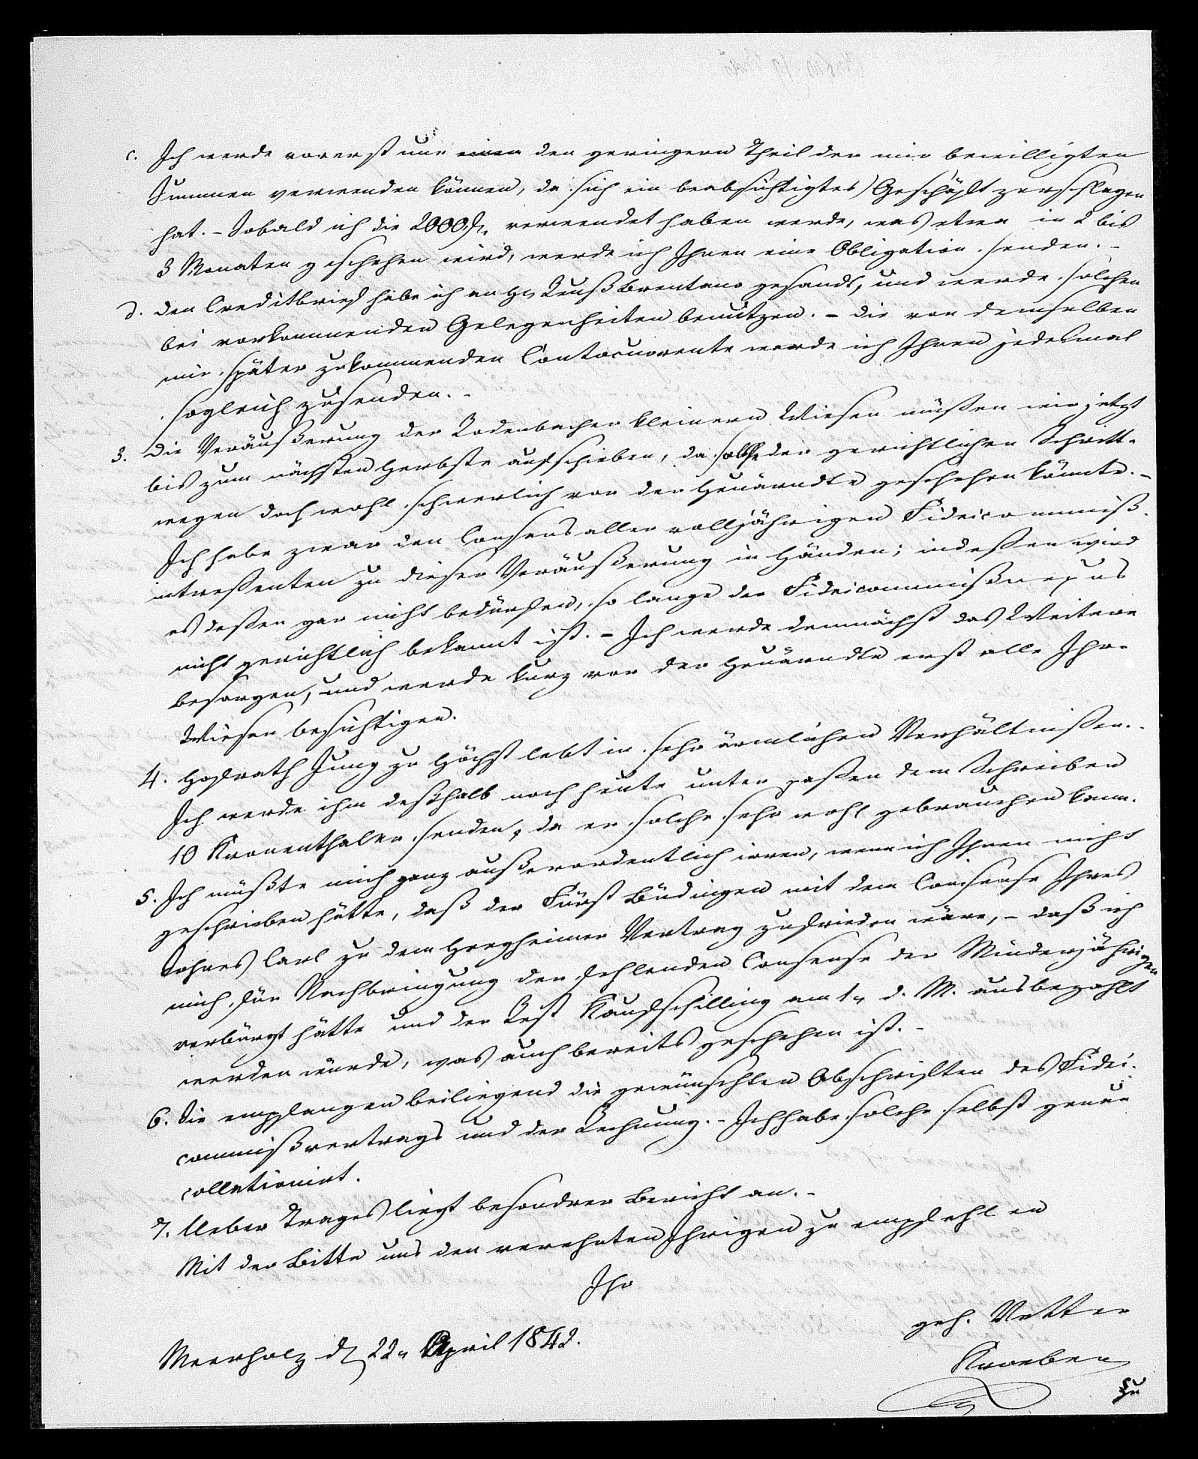 c. Ich werde vorerst nur einen den geringern Theil der mir bewilligten
Summen verwenden können, da sich ein beabsichtigtes Geschäft zerschlagen
hat. – Sobald ich die 2000 f. verwendet haben werde, was etwa in 2 bis
3 Monaten geschehen wird, werde ich Ihnen eine Obligation senden. –
d. Den Creditbrief habe ich an H. Brentano gesandt, und werde solchen
bei vorkommenden Gelegenheiten benutzen. – Die von demselben
mir später zukommenden Contocurrente werde ich Ihnen jedesmal
sogleich zusenden. –
3. Die Veräußerung der Rodenbacher kleinern Wiesen müßen wir jetzt
bis zum nächsten Herbste aufschieben, da solche der gerichtlichen Schritte
wegen doch wohl schwerlich vor der Heuärndte geschehen könnte. –
Ich habe zwar den Consens aller volljährigen Fideicommiß-
intreßenten zu dieser Veräußerung in Händen; indeßen wird
es deßen gar nicht bedürfen, so lange der Fideicommißnexus
nicht gerichtlich bekannt ist. – Ich werde demnächst das Weitere
besorgen, und werde kurz vor der Heuärndte erst alle Ihre
Wiesen besichtigen.
4. Hofrath Jung zu Höchst lebt in sehr ärmlichen Verhältnißen. –
Ich werde ihm deßhalb noch heute unter paßendem Schreiben
10 Kronenthaler senden, da er solche sehr wohl gebrauchen kann.
5. Ich müßte mich ganz außerordentlich irren, wenn ich Ihnen nicht
geschrieben hätte, daß der Fürst Büdingen mit dem Consense Ihres
Sohnes Carl zu dem Hergheimer Vertrag zufrieden wäre, – daß ich
mich für Nachbringung der fehlenden Consense der Minderjährigen
verbürgt hätte und der Rest Kaufschilling am 1. d. M. ausbezahlt
werden würde, was auch bereits geschehen ist. –
6. Sie empfangen beiliegend die gewünschten Abschriften des Fidei-
commißvertrags und der Rechnung. – Ich habe solche selbst genau
collationirt.
7. Ueber Trages liegt besondrer Bericht an. –
Mit der Bitte uns den verehrten Ihrigen zu empfehlen
Ihr
geh. Vetter
Meerholz d. 22. April 1842.